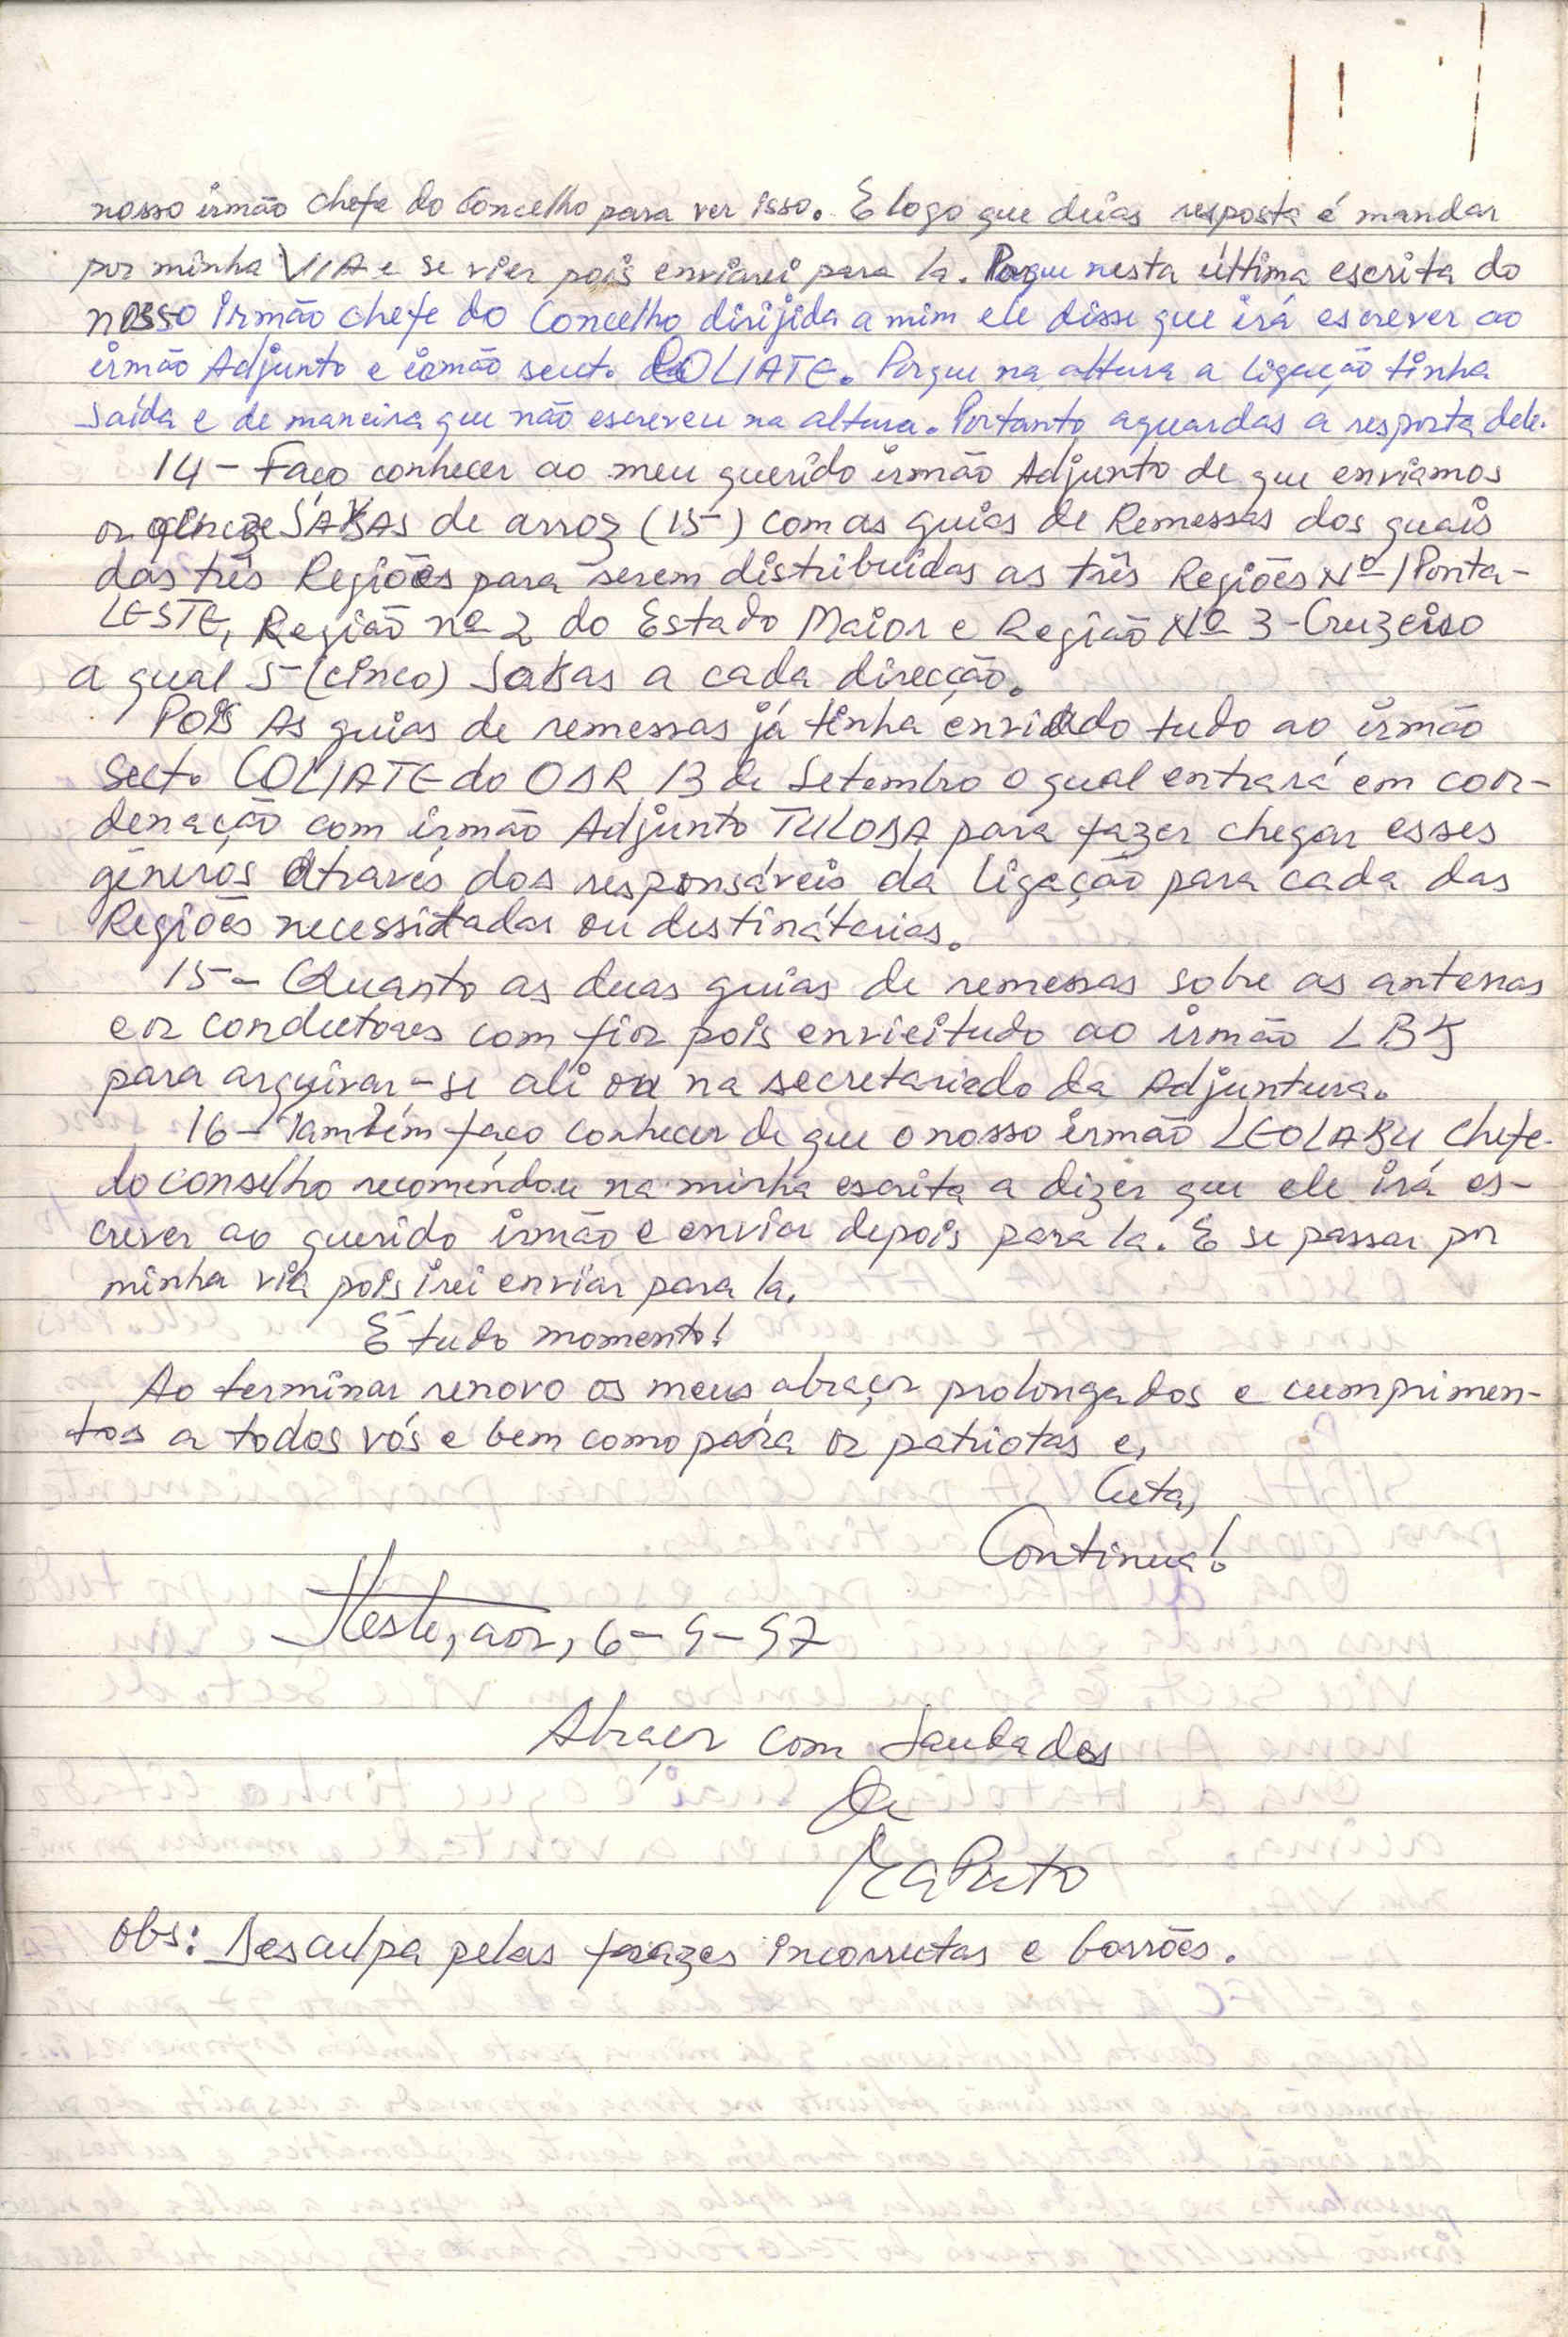 nosso irmão chefe do Concelho para ver isso. E logo que deias resposta é mandar
por minha VIA e se vier pois enviarei para la. Porque nesta últtima escrita do
nosso irmão chefe do Concelho dirijida a mim ele disse que irá escrever ao
irmão Adjunto e irmão secto. COLIATE. Porque na altura a ligação tinha
saída e de maneira que não escreveu na altura. Portanto aguardas a resposta dele.
14 - Faço conhecer ao meu querido irmão Adjunto de que enviamos
os quinze SAKAS de arroz (15) com as guias de Remessas dos quais
das três Regiões para serem distribuidas as três Regiões Nº 1 Ponta-
LESTE, Região nº 2 do Estado Maior e Região Nº 3 - Cruzeiro
a qual 5 (cinco) Sakas a cada direcção.
Pois As guias de remessas já tinha enviado tudo ao irmão
Secto COLIATE do OSR 13 de Setembro o qual entrará em coor-
denação com irmão Adjunto TULODA para fazer chegar esses
géneros através dos responsáveis da ligação para cada das
Regiões necessitadas ou destinátarias.
15 - Quanto as duas guias de remessas sobre as antenas
e os condutores com fios pois enviei tudo ao irmão LBK
para arquivar-se ali ou na secretariado da Adjuntura.
16 - Também faço conhecer de que o nosso irmão LEOLABU Chefe
do conselho recomendou na minha escrita a dizer que ele irá es-
crever ao querido irmão e enviar depois para la. E se passar por
minha via pois irei enviar para la.
É tudo momento!
Ao terminar renovo os meus abraços prolongados e cumprimen-
tos a todos vós e bem como para os patriotas e,
Luta,
Continua!
Leste, aos, 6-9-97
Abraços com Saudades
de
Maputo
Obs: Desculpa pelas frazes incorrectas e borrões.